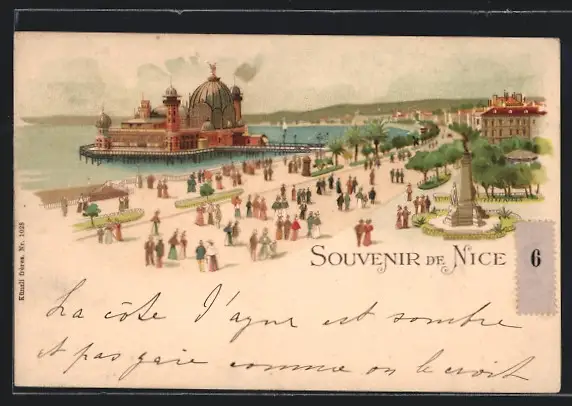 SOUVENIR DE NICE
6
Künzli frères. Nr. 1025
La côte d'azur est sombre
et pas gaie comme on le croit